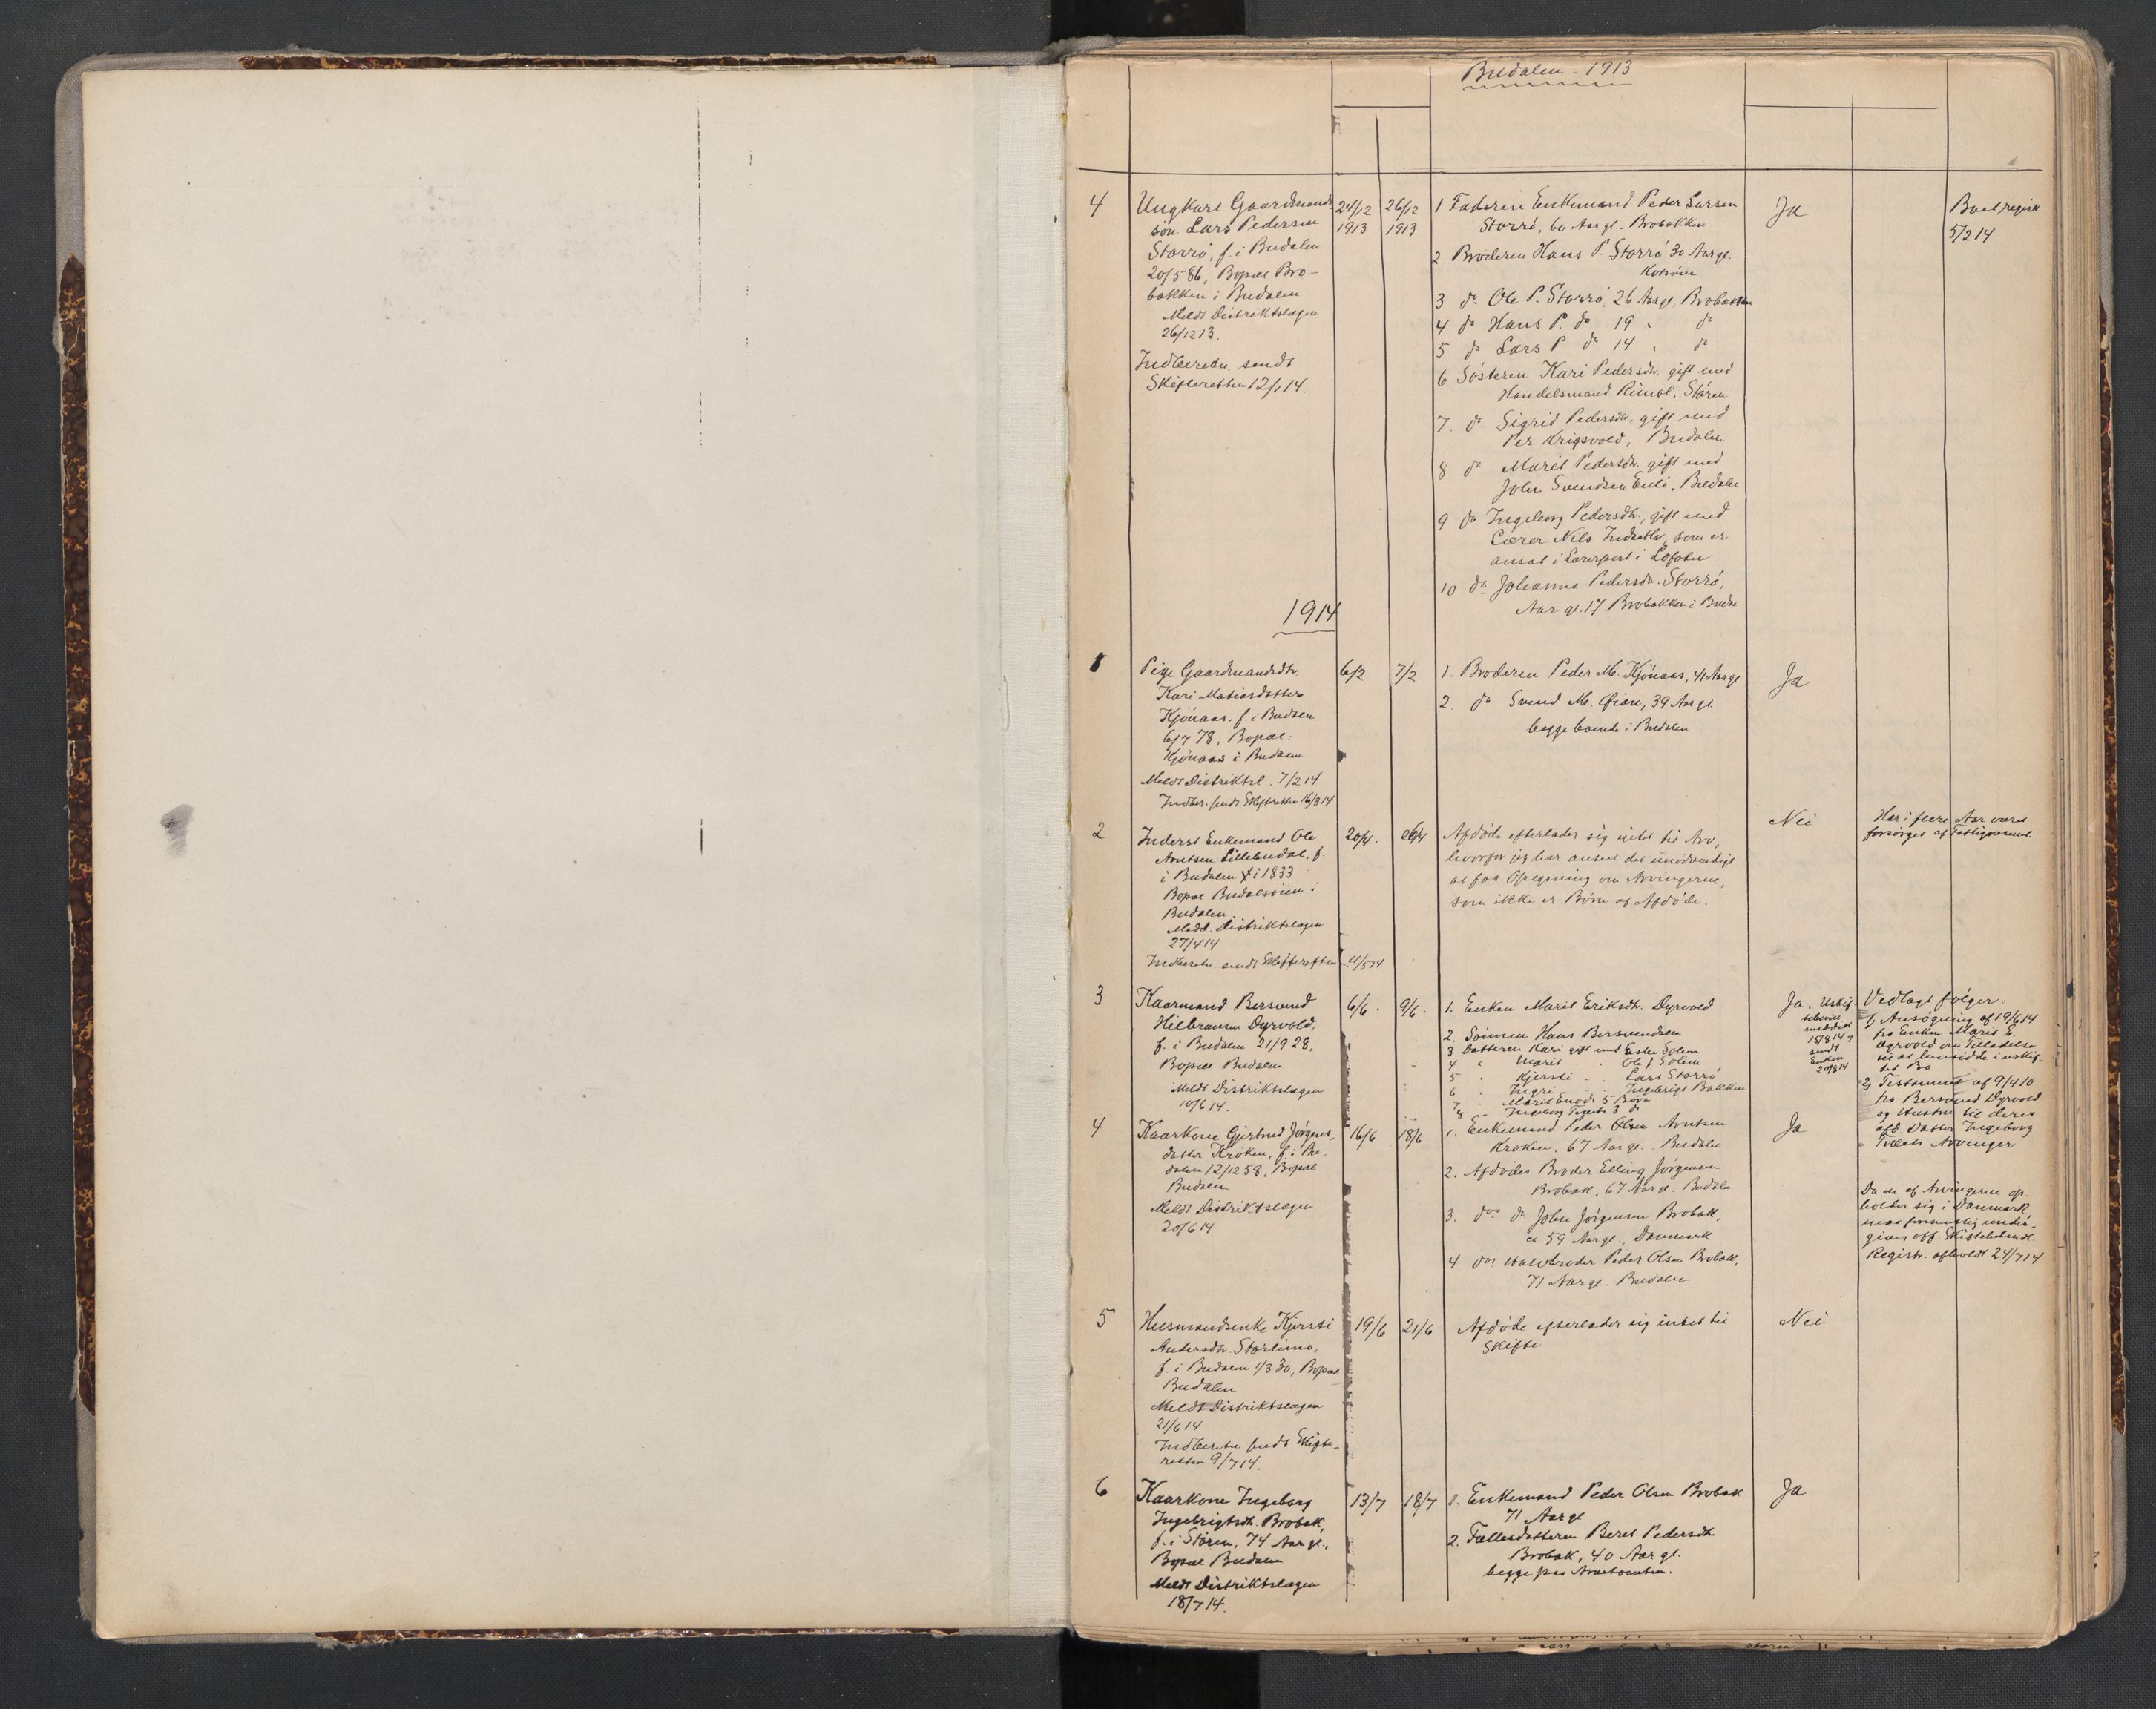 Budalen - 1913
4
Ungkarl Gaardmands
søn Lars Pedersen
Storrö, f. i Budalen
20/5 86, Bopæl Bro-
bakken i Budalen
Meldt Distriktslægen
26/12 13.
Indberetn. sendt
Skifteretten 12/1 14.
24/12
1913
26/12
1913
1 Faderen Enkemand Peder Larsen
Storrö, 60 Aar gl. Brobakken
2 Broderen Hans P. Storrö 30 Aar gl.
3 do Ole P. Storrö, 26 Aar gl. Brobakken
4 do Hans P. do 19 " do
5 do Lars P do 14 " do
6 Søsteren Kari Pedersdtr. gift med
Handelsmand Rimol, Støren
7. do Sigrid Pedersdtr. gift med
Per Krigsvold, Budalen
8 do Marit Pedersdtr. gift med
John Svendsen Enli, Budalen
9 do Ingeborg Pedersdtr., gift med
Lærer Nils Indsetli, som er
ansat i Lærerpost i Lofoten
10 do Johanna Pedersdtr. Storrö,
Aar gl. 17 Brobakken i Budalen
Ja
5/2 14
1914
1
Pige Gaardmandsdtr.
Kari Matiasdatter
Kjönaas. f. i Budalen
6/7 78, Bopæl:
Kjönaas i Budalen
Meldt Distriktsl. 7/2 14
Indber. sendt Skifteretten 16/3 14
6/2
7/2
1. Broderen Peder M. Kjönaas, 41 Aar gl
2. do Svend M. Øian, 39 Aar gl.
begge boende i Budalen
Ja
2
Inderst Enkemand Ole
Arntsen Lillebudal, f.
i Budalen i 1833
Bopæl Budalsveien i
Budalen.
Meldt Distriktslægen
27/4 14
Indberetn. sendt Skifteretten 11/5 14
20/4.
26/4
Afdöde efterlader sig intet til Arv,
hvorfor jeg har anseet det unödvendigt
at faa Oplysning om Arvingerne,
som ikke er Börn af Afdöde.
Nei
Har i flere Aar været
forsørget af Fattigvæsenet
3
Kaarmand Bersvend
Hilbransen Dyrvold,
f. i Budalen 21/9 28,
Bopæl Budalen
Meldt Distriktslægen
10/6 14.
6/6.
9/6.
1. Enken Marit Eriksdtr. Dyrvold
2. Sönnen Hans Bersvendsen
3 Datteren Kari gift med Esten Solem
4 " Marit " " Ole J Solem
5 " Kjersti " " Lars Storrö
6 " Ingri " " Ingebrigt Bakken
7 " Marit Enods 5 Börn
8 " Ingeborg Tillets 3 do
Ja. Uskif-
tebevill.
meddelt
15/8 14
sendt
Enken
20/8 14
Vedlagt fölger:
1, Ansögning af 19/6 14
fra Enken Marit E.
Dyrvold om Tilladelse
til at hensidde i uskif-
tet Bo
2, Testament af 9/4 10
fra Bersvend Dyrvold
og Hustru til deres
afd. Datter Ingeborg
Tillets Arvinger
4
Kaarkone Gjertrud Jørgens-
datter Kroken, f. i Bu-
dalen 12/12 58, Bopæl
Budalen
Meldt Distriktslægen
20/6 14
16/6
18/6
1. Enkemand Peder Olsen Arntsen
Kroken, 67 Aar gl. Budalen
2. Afdödes Broder Elling Jørgensen
Brobak, 67 Aar gl. Budalen
3. dos do John Jørgensen Brobak,
ca 59 Aar gl, Danmark
4 dos Halvbroder Peder Olsen Brobak,
71 Aar gl. Budalen
Ja
Da en af Arvingerne op-
holder sig i Danmark,
maa formentlig under-
gives off. Skiftebehandl.
Registr. afholdt 24/7 14
5
Husmandsenke Kjersti
Andersdtr. Storlimo,
f. i Budalen 1/3 30, Bopæl
Budalen
Meldt Distriktslægen
21/6 14
Indberetn. sendt Skifte-
retten 9/7 14.
19/6
21/6
Afdöde efterlader sig intet til
Skifte
Nei
6
Kaarkone Ingeborg
Ingebrigtsdtr. Brobak,
f. i Støren, 74 Aar gl.,
Bopæl Budalen
Meldt Distriktslægen
18/7 14.
13/7
18/7
1. Enkemand Peder Olsen Brobak
71 Aar gl
2. Fællesdatteren Beret Pedersdtr
Brobak, 40 Aar gl.
Ja